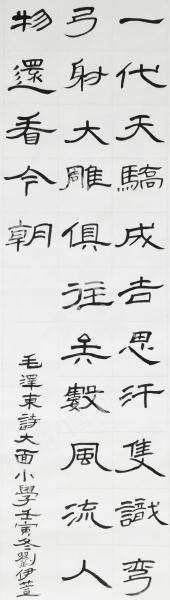 一代天驕成吉思汗隻識彎
弓射大雕俱往矣數風流人
物還看今朝
毛澤東詩大面小學壬寅冬劉伊萱